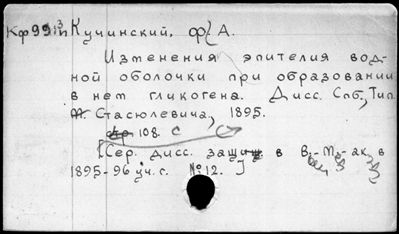 Кф99з/п Кучинский, Ф. А.
Изменения эпителия вод-
ной оболочки при образовании
в нем гликогена. Дисс. Спб., Тип.
М. Стасюлевича, 1895.
108 с
[Сер. дисс. защищ в В.-М. ак. в
1895-96 уч. г. № 12.]